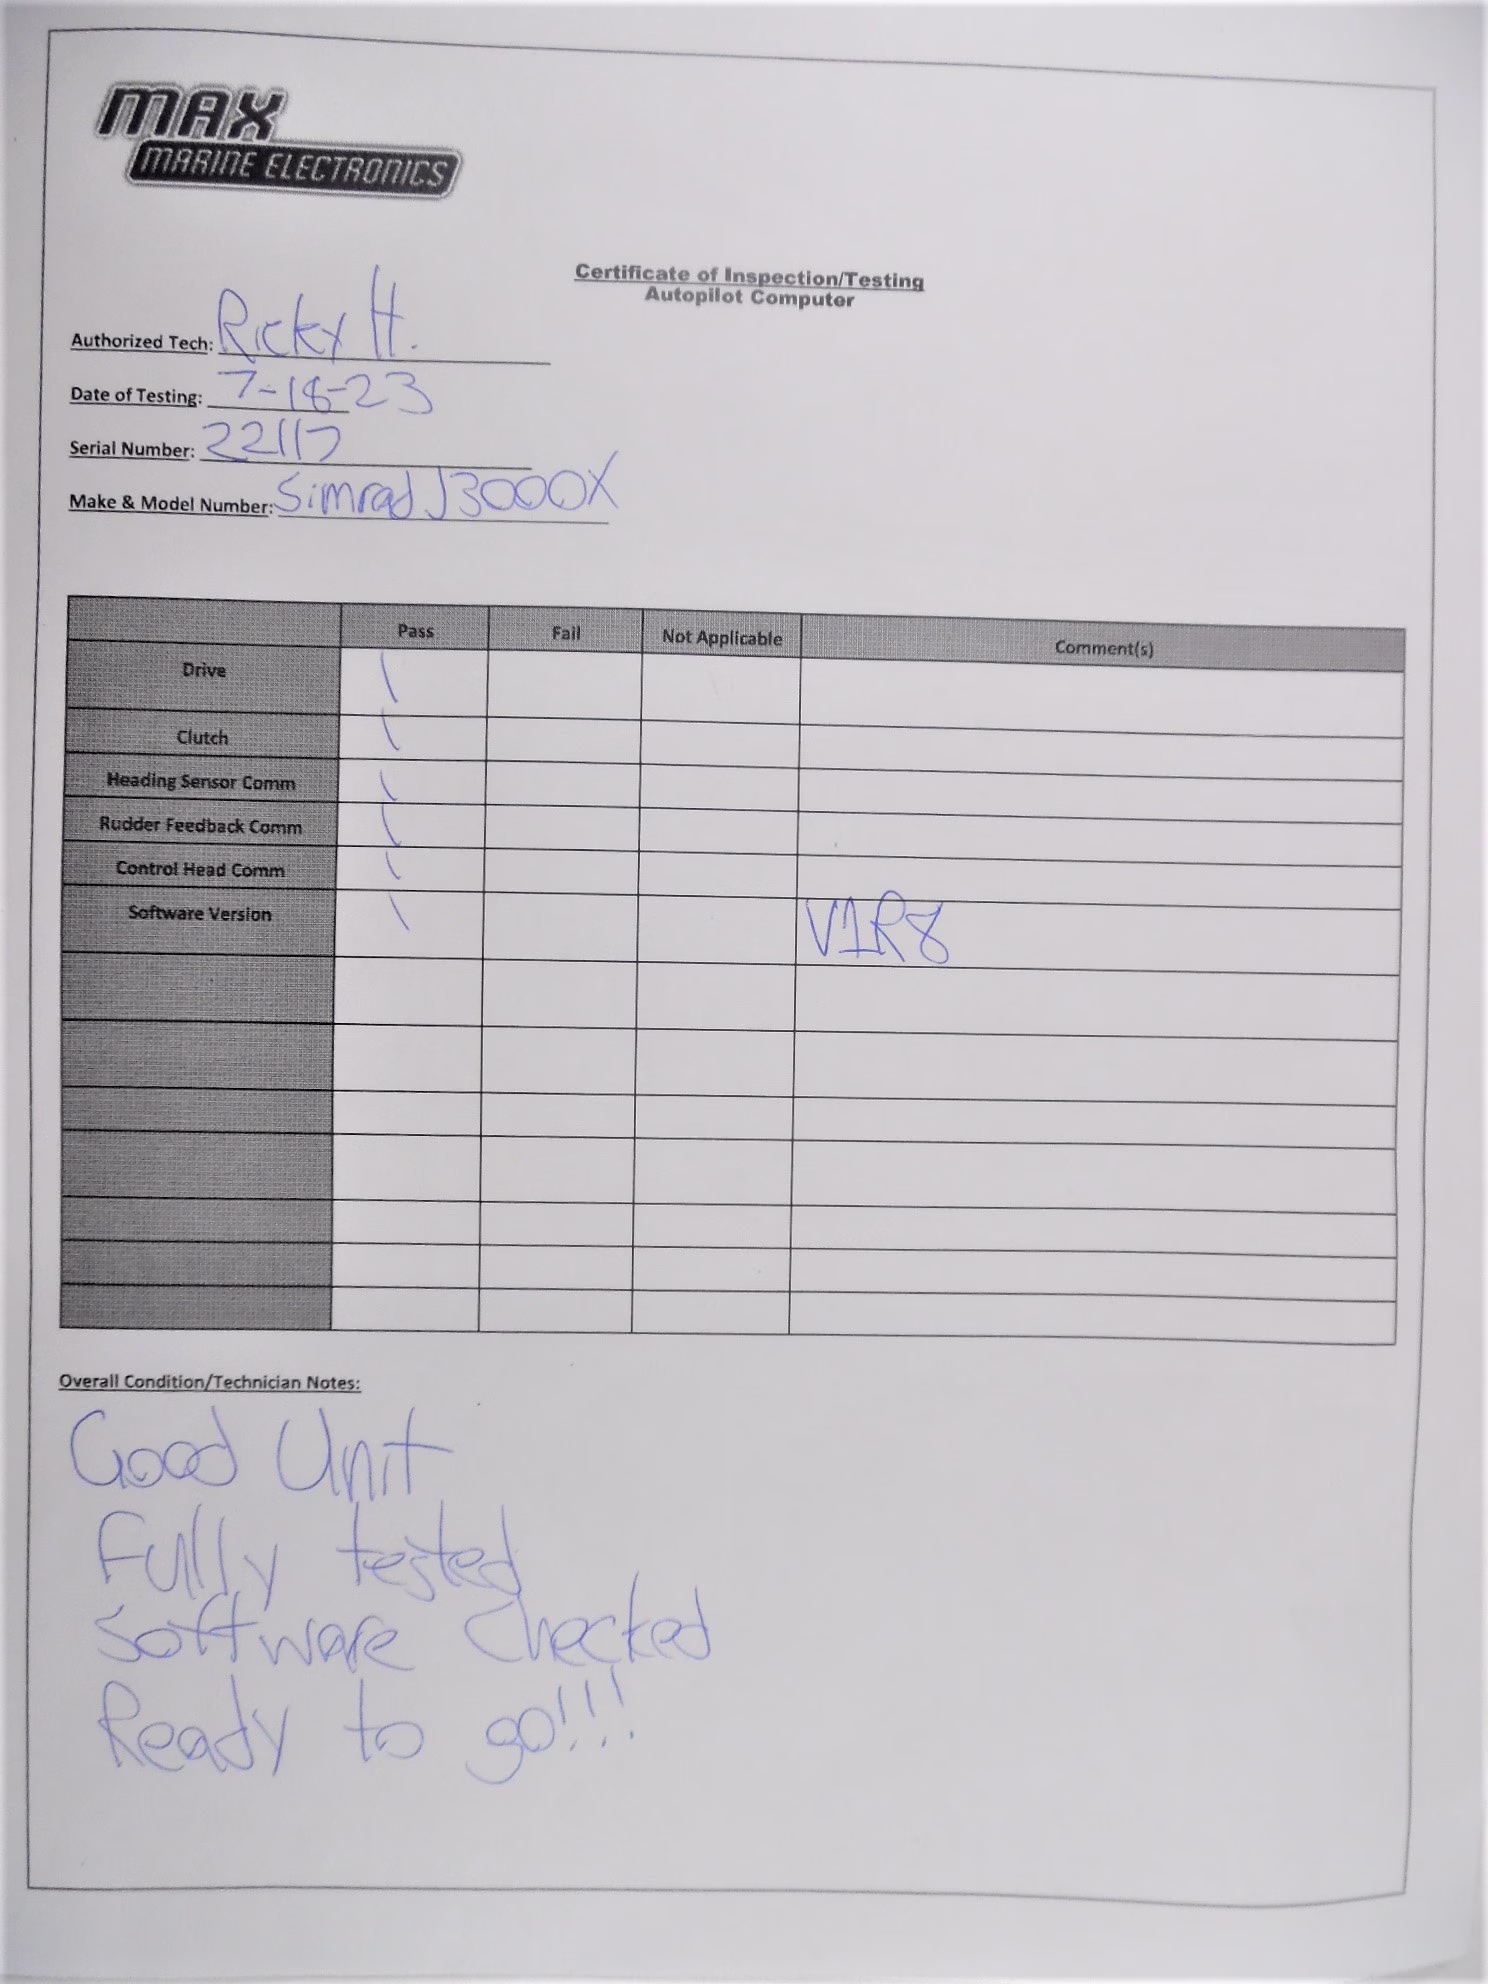 MAX
MARINE ELECTRONICS
Certificate of Inspection/Testing
Autopilot Computer
Authorized Tech: Ricky H.
Date of Testing: 7-18-23
Serial Number: 22117
Make & Model Number: Simrad J3000X
Pass Fail Not Applicable Comment(s)
Drive \
Clutch \
Heading Sensor Comm \
Rudder Feedback Comm \
Control Head Comm \
Software Version \ V1R8
Overall Condition/Technician Notes:
Good Unit
Fully tested
Software Checked
Ready to go!!!